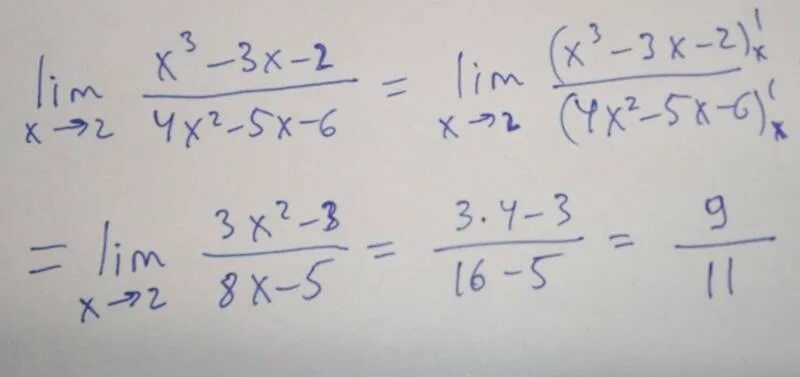 lim x→2 (x³ − 3x − 2)/(4x² − 5x − 6) = lim x→2 (x³ − 3x − 2)'ₓ/(4x² − 5x − 6)'ₓ
= lim x→2 (3x² − 3)/(8x − 5) = (3·4 − 3)/(16 − 5) = 9/11